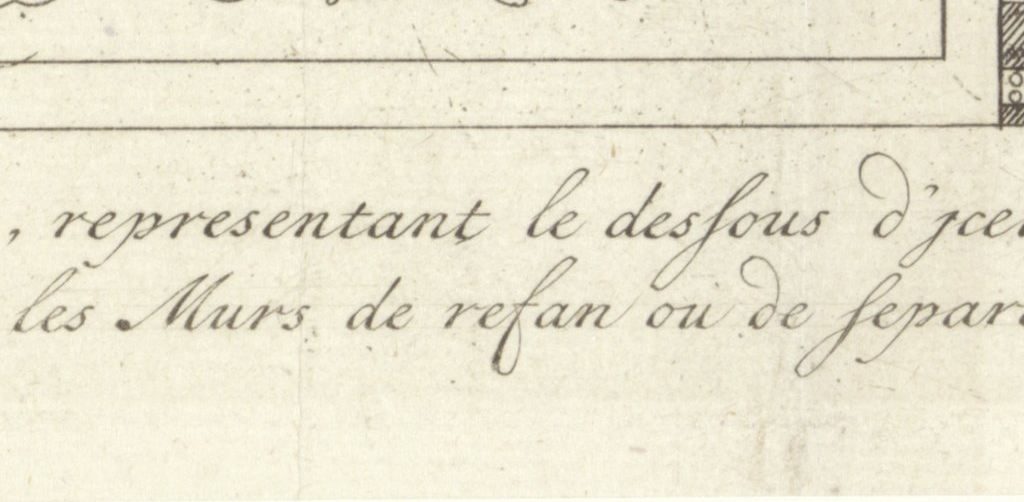 , representant le desſous d'jcel
les Murs de refan ou de ſepar